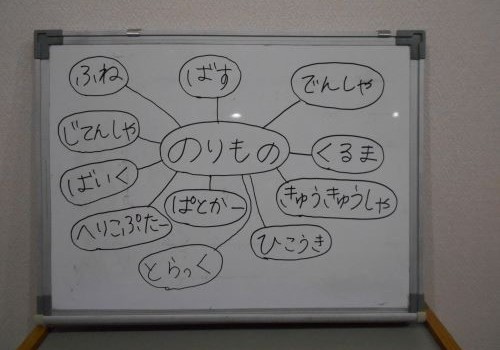 ふね
ばす
でんしゃ
じてんしゃ
のりもの
くるま
ばいく
きゅうきゅうしゃ
ぱとかー
へりこぷたー
ひこうき
とらっく